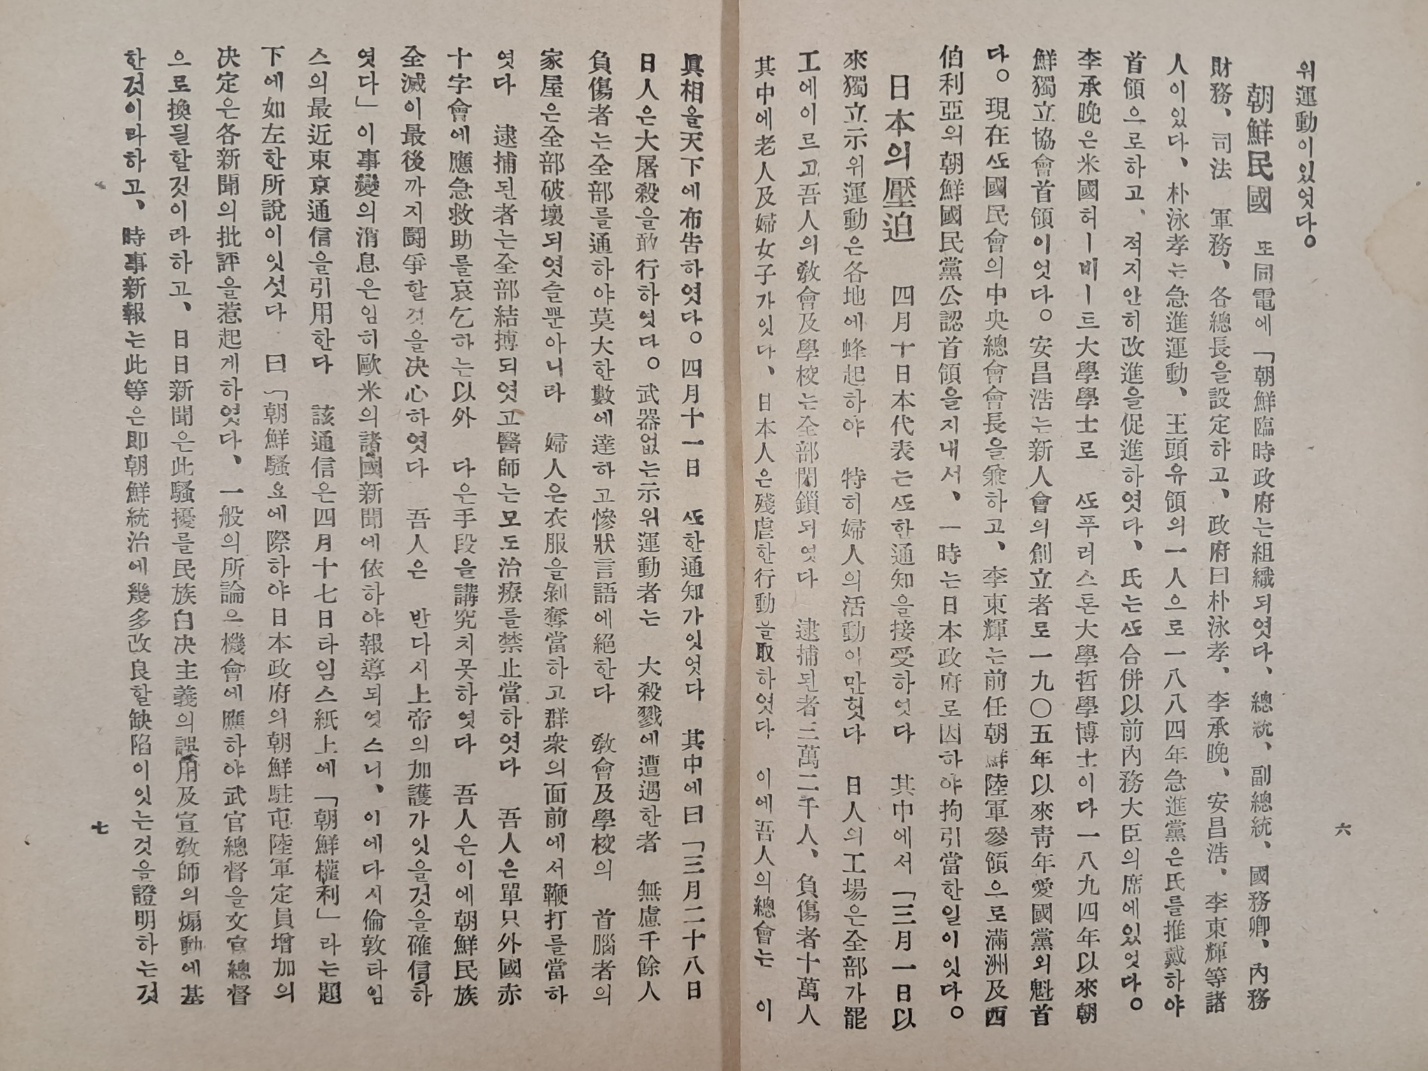 위運動이잇엇다。
朝鮮民國 또同電에「朝鮮臨時政府는組織되엿다、總統、副總統、國務卿、內務
財務、司法 軍務、各總長을設定하고、政府曰朴泳孝、李承晚、安昌浩、李東輝等諸
人이있다、朴泳孝는急進運動、王頭유領의一人으로一八八四年急進黨은氏를推戴하야
首領으로하고、적지안히改進을促進하엿다、氏는또合併以前內務大臣의席에있엇다。
李承晚은米國허ー비ー트大學學士로 또푸러스톤大學哲學博士이다一八九四年以來朝
鮮獨立協會首領이엇다。安昌浩는新人會의創立者로一九〇五年以來靑年愛國黨외魁首
다。現在또國民會의中央總會會長을兼하고、李東輝는前任朝鮮陸軍參領으로滿洲及西
伯利亞의朝鮮國民黨公認首領을지내서、一時는日本政府로因하야拘引當한일이잇다。
日本의壓迫 四月十日本代表는또한通知를接受하엿다 其中에서「三月一日以
來獨立示위運動은各地에蜂起하야 特히婦人의活動이만헛다 日人의工場은全部가罷
工에이르고、吾人의敎會及學校는全部閉鎖되엿다 逮捕된者三萬二千人、負傷者十萬人
其中에老人及婦女子가잇다、日本人은殘虐한行動을取하엿다 이에吾人의總會는 이
六
眞相을天下에布告하엿다。四月十一日 또한通知가잇엇다 其中에曰「三月二十八日
日人은大屠殺을敢行하엿다。武器없는示위運動者는 大殺戮에遭遇한者 無慮千餘人
負傷者는全部를通하야莫大한數에達하고慘狀言語에絕한다 敎會及學校의 首腦者의
家屋은全部破壞되엿슬뿐아니라 婦人은衣服을剝奪當하고群衆의面前에서鞭打를當하
엿다 逮捕된者는全部結搏되엿고醫師는모도治療를禁止當하엿다 吾人은單只外國赤
十字會에應急救助를哀乞하는以外 다은手段을講究치못하엿다 吾人은이에朝鮮民族
全滅이最後까지鬪爭할것을决心하엿다 吾人은 반다시上帝의加護가잇을것을確信하
엿다」이事變의消息은임히歐米의諸國新聞에依하야報導되엿스니、이에다시倫敦타임
스의最近東京通信을引用한다 該通信은四月十七日타임스紙上에「朝鮮權利」라는題
下에如左한所說이잇섯다 曰「朝鮮騷요에際하야日本政府의朝鮮駐屯陸軍定員增加의
决定은各新聞의批評을惹起게하엿다、一般의所論으機會에應하야武官總督을文官總督
으로換될할것이라하고、日日新聞은此騷擾를民族自决主義의誤用及宣敎師의煽動에基
한것이라하고、時事新報는此等은卽朝鮮統治에幾多改良할缺陷이잇는것을證明하는것
七